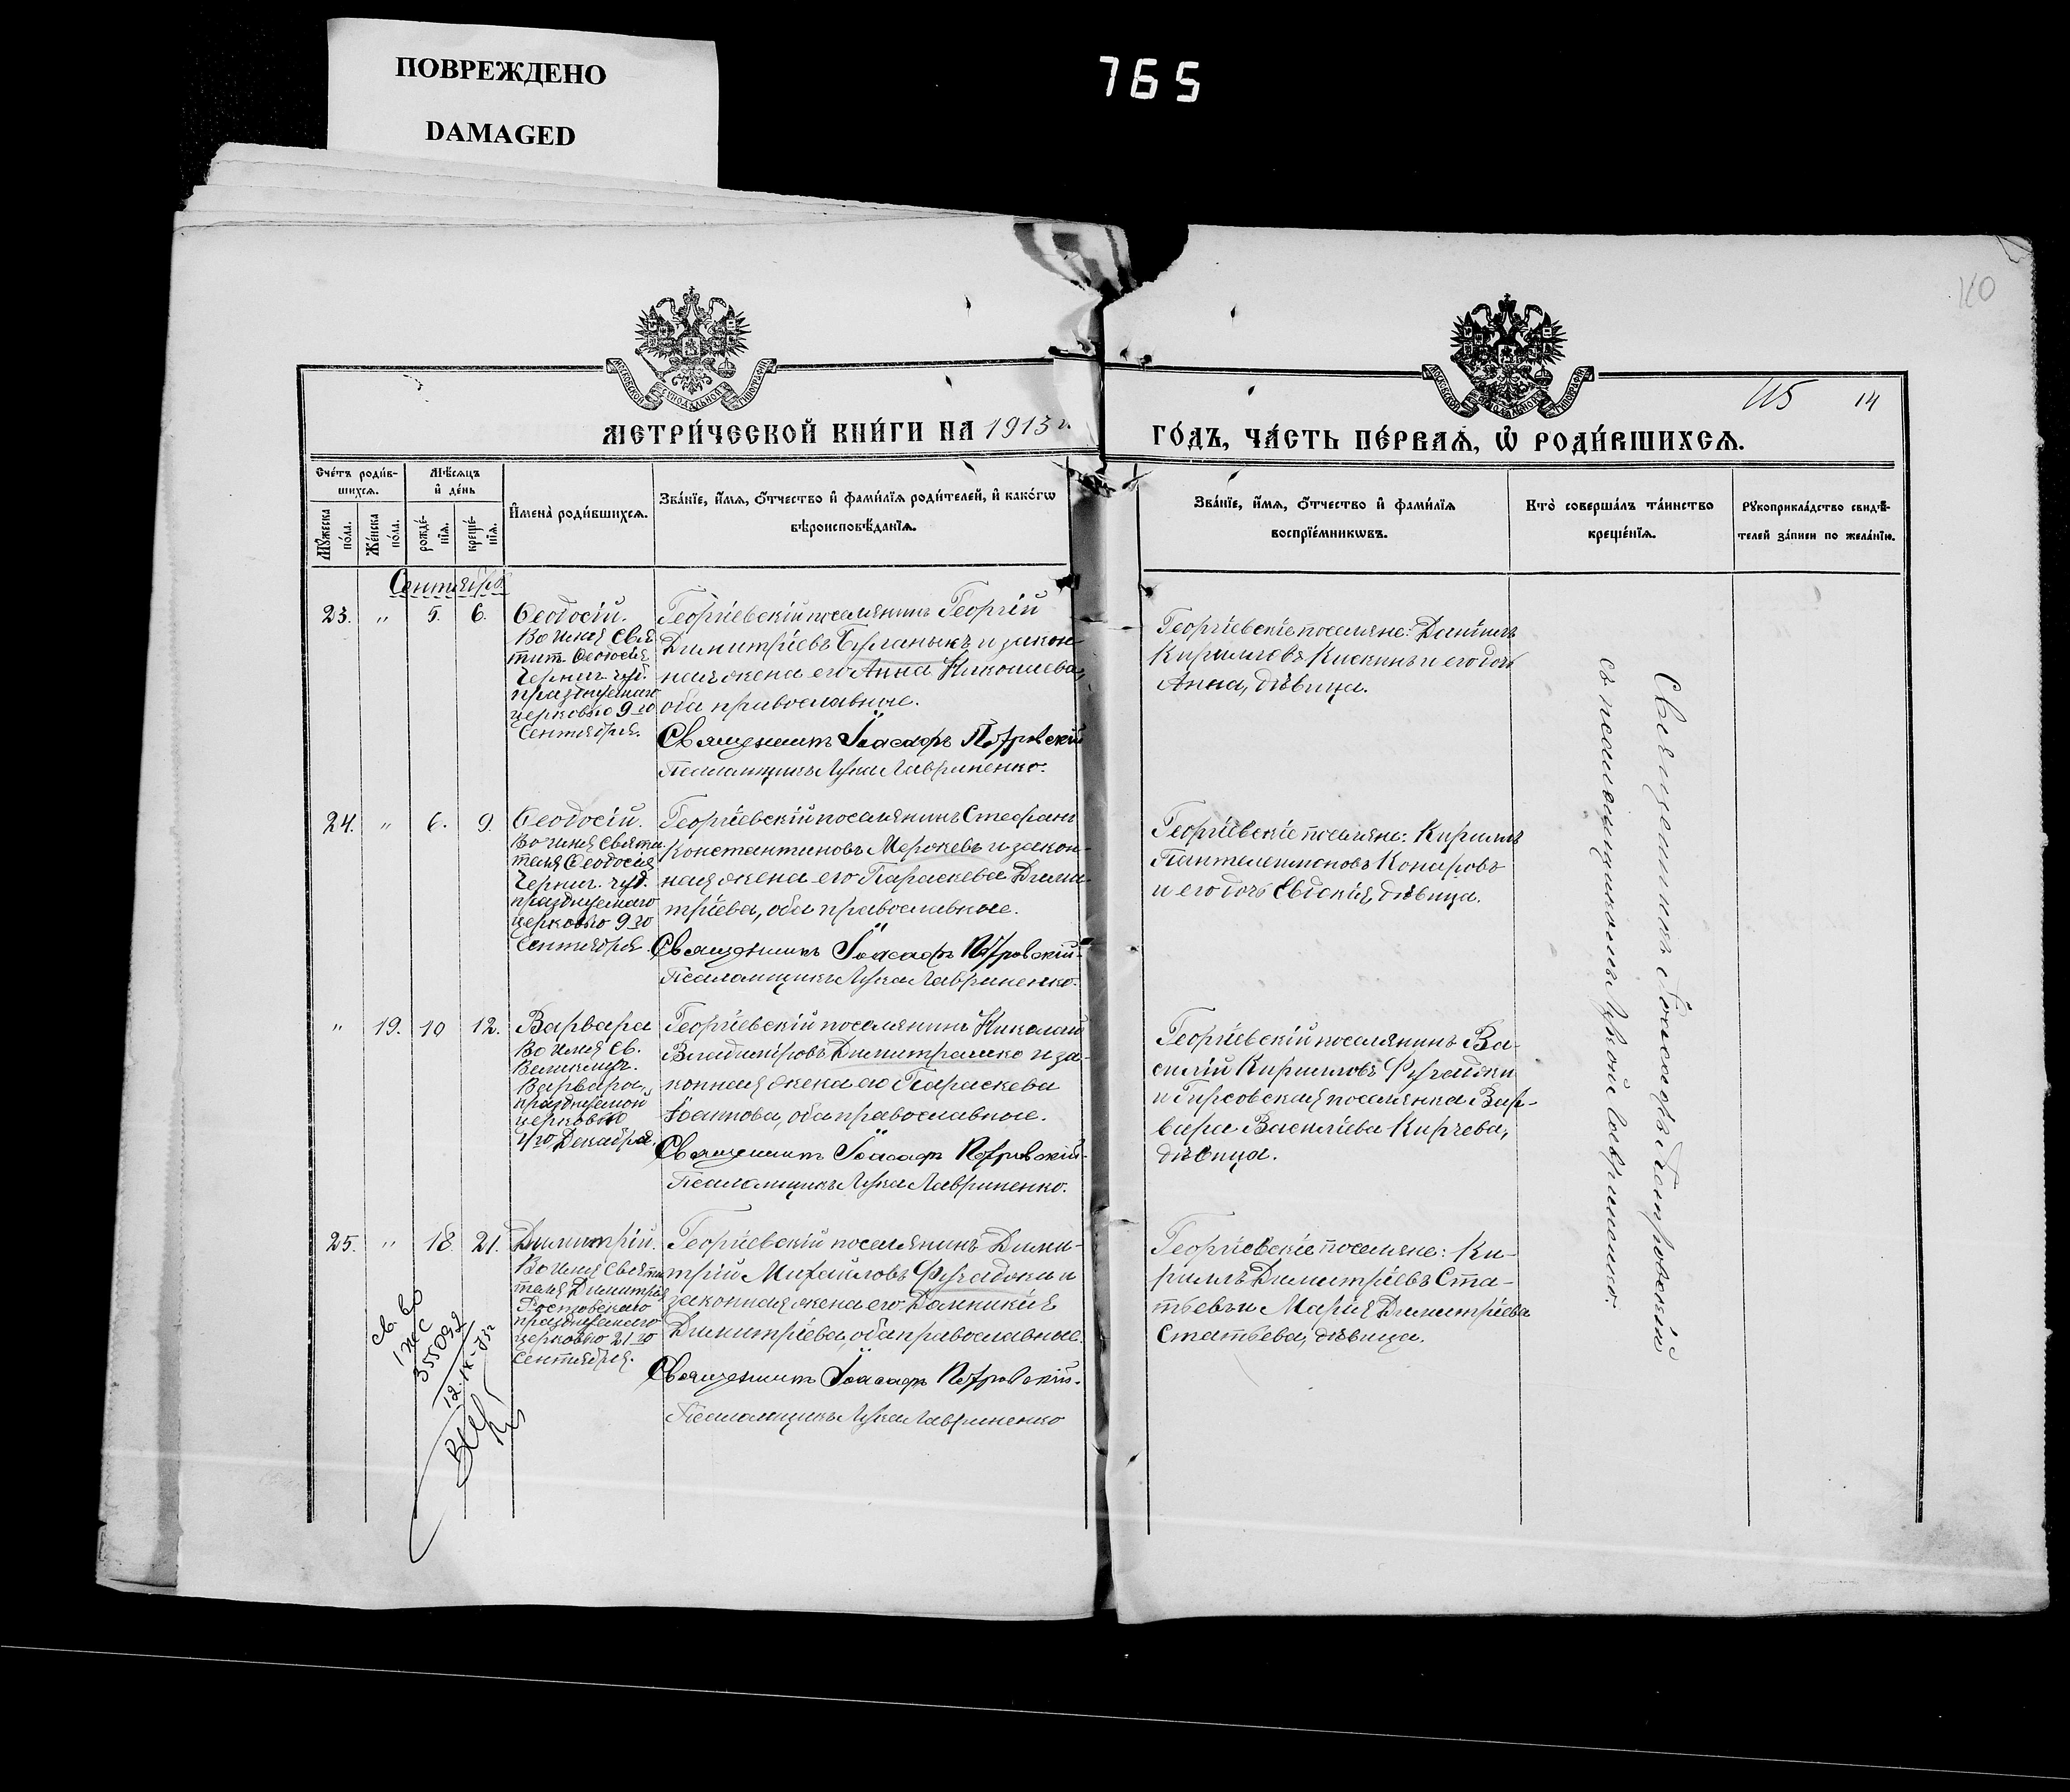 ПОВРЕЖДЕНО
DAMAGED
765
110
115 14
МОСКОВСКОЙ СѴНОДАЛЬНОЙ ТИПОГРАФІИ
МОСКОВСКОЙ СѴНОДАЛЬНОЙ ТИПОГРАФІИ
МЕТРИ́ЧЕСКОЙ КНИ́ГИ НА 1913 г.
ГО́ДЪ, ЧА́СТЬ ПЕ́РВАѦ, Ѡ҆ РОДИ́ВШИХСѦ.
Сче́тъ роди́в-
шихсѧ.
Мѣ́сѧцъ
и҆ де́нь
Мꙋ́жеска
по́ла.
Же́нска
по́ла.
рожде́-
нїѧ.
креще́-
нїѧ.
И҆мена̀ роди́вшихсѧ.
Зва́нїе, и҆́мѧ, ѻ҆́тчество и҆ фами́лїѧ роди́телей, и҆ како́гѡ
вѣроисповѣ́данїѧ.
Зва́нїе, и҆́мѧ, ѻ҆́тчество и҆ фами́лїѧ
воспрїе́мникѡвъ.
Кто̀ соверша́лъ та́инство
креще́нїѧ.
Рꙋкоприкла́дство свидѣ́-
телей за́писи по жела́нїю.
Сентябрь
23. " 5. 6.
Ѳеодосій.
Во имя Свя-
тит. Ѳеодосія
Черниг. чуд.
празднуемаго
церковью 9го
Сентября.
Георгіевскій поселянинъ Георгій
Димитріевъ и закон-
ная жена его Анна Николаева,
оба православные.
Священникъ Іоасафъ Петровскій
Псаломщикъ Лука Лавриненко.
Георгіевскіе поселяне: Даніилъ
Кирилловъ Кискинъ и его дочь
Анна, дѣвица.
24. " 6. 9.
Ѳеодосій.
Во имя Святи-
теля Ѳеодосія
Черниг. чуд.
празднуемаго
церковью 9го
Сентября.
Георгіевскій поселянинъ Стефанъ
Константиновъ и закон-
ная жена его Параскева Дими-
тріева, оба православные.
Священникъ Іоасафъ Петровскій.
Псаломщикъ Лука Лавриненко.
Георгіевскіе поселяне: Кириллъ
Пантелеимоновъ Комаровъ
и его дочь Евдокія, дѣвица.
" 19. 10 12.
Варвара
Во имя Св.
Великомуч.
Варвары,
празднуемой
церковью
4го Декабря.
Георгіевскій поселянинъ Николай
Владиміровъ Димитрашко и за-
конная жена его Параскева
Іоаннова, оба православные.
Священникъ Іоасафъ Петровскій.
Псаломщикъ Лука Лавриненко.
Георгіевскій поселянинъ Ва-
силій Кирилловъ Фучаджи
и Гирсовская поселянка Вар-
вара Василіева Кирчева,
дѣвица.
25. " 18. 21.
Димитрій.
Во имя Святи-
теля Димитрія
Ростовскаго
празднуемаго
церковью 21го
Сентября.
Георгіевскій поселянинъ Дими-
трій Михайловъ Фучаджи и
законная жена его Домникія
Димитріева, оба православные.
Священникъ Іоасафъ Петровскій.
Псаломщикъ Лука Лавриненко
Георгіевскіе поселяне: Ки-
риллъ Димитріевъ Ста-
тьевъ и Марія Димитріева
Статьева, дѣвица.
Священникъ Іоасафъ Петровскій
съ псаломщикомъ Лукой Лавриненко.
св-во
355092